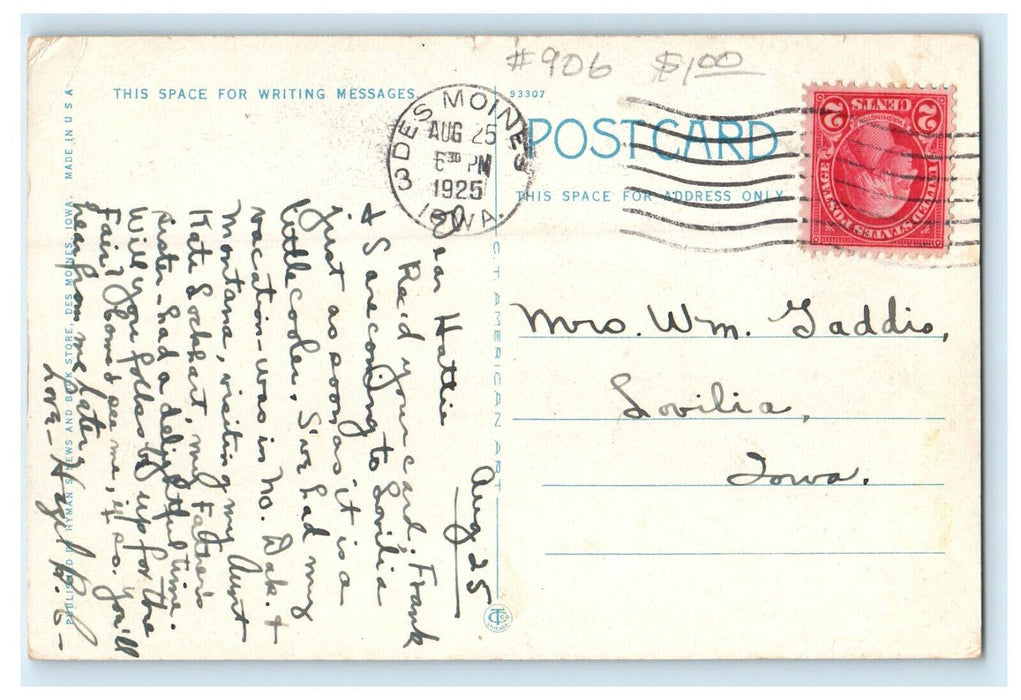 #906 $1.00
THIS SPACE FOR WRITING MESSAGES
93307
POST CARD
THIS SPACE FOR ADDRESS ONLY
3 DES MOINES
AUG 25
6 30 PM
1925
IOWA.
2 CENTS 2
WASHINGTON
UNITED STATES POSTAGE
Mrs. Wm. Gaddis,
Lovilia,
Iowa.
Aug 25
Dear Hattie
Rec'd your card. Frank
& I are coming to Lovilia
just as soon as it is a
little cooler. I've had my
vacation - was in No. Dak. &
Montana, visiting my Aunt
Kate Lockhart, my Father's
sister. had a delightful time.
Will you folks be up for the
Fair? Come & see me, if so. You'll
hear from me later
Love - Hazel
PUBLISHED BY HYMAN'S NEWS AND BOOK STORE, DES MOINES, IOWA. MADE IN U S A
C T AMERICAN ART